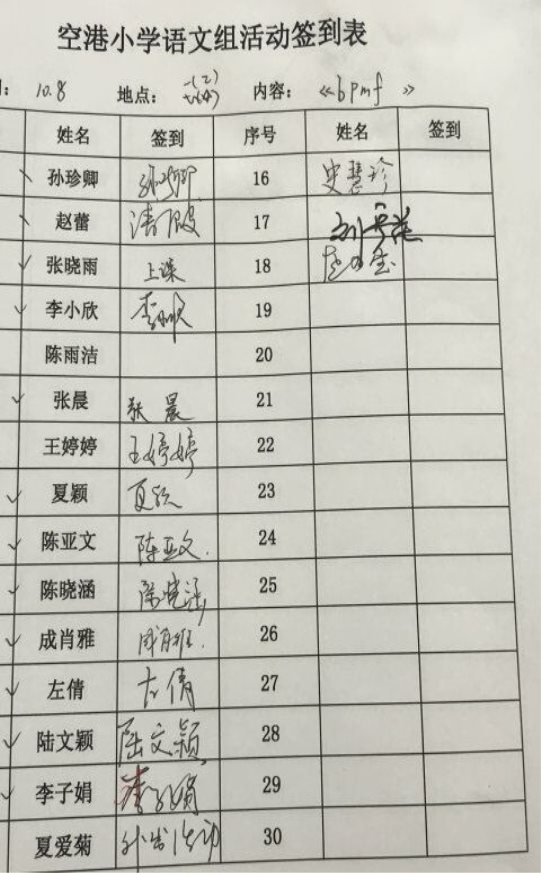 空港小学语文组活动签到表
: 10.8 地点: 一(2) 内容: 《bpmf》
姓名 签到 序号 姓名 签到
孙珍卿 孙珍卿 16 史慧珍
赵蕾 请假 17
张晓雨 上课 18
李小欣 李小欣 19
陈雨洁 20
张晨 张晨 21
王婷婷 王婷婷 22
夏颖 夏颖 23
陈亚文 陈亚文. 24
陈晓涵 陈晓涵 25
成肖雅 成肖雅. 26
左倩 左倩 27
陆文颖 陆文颖 28
李子娟 李子娟 29
夏爱菊 外出活动 30